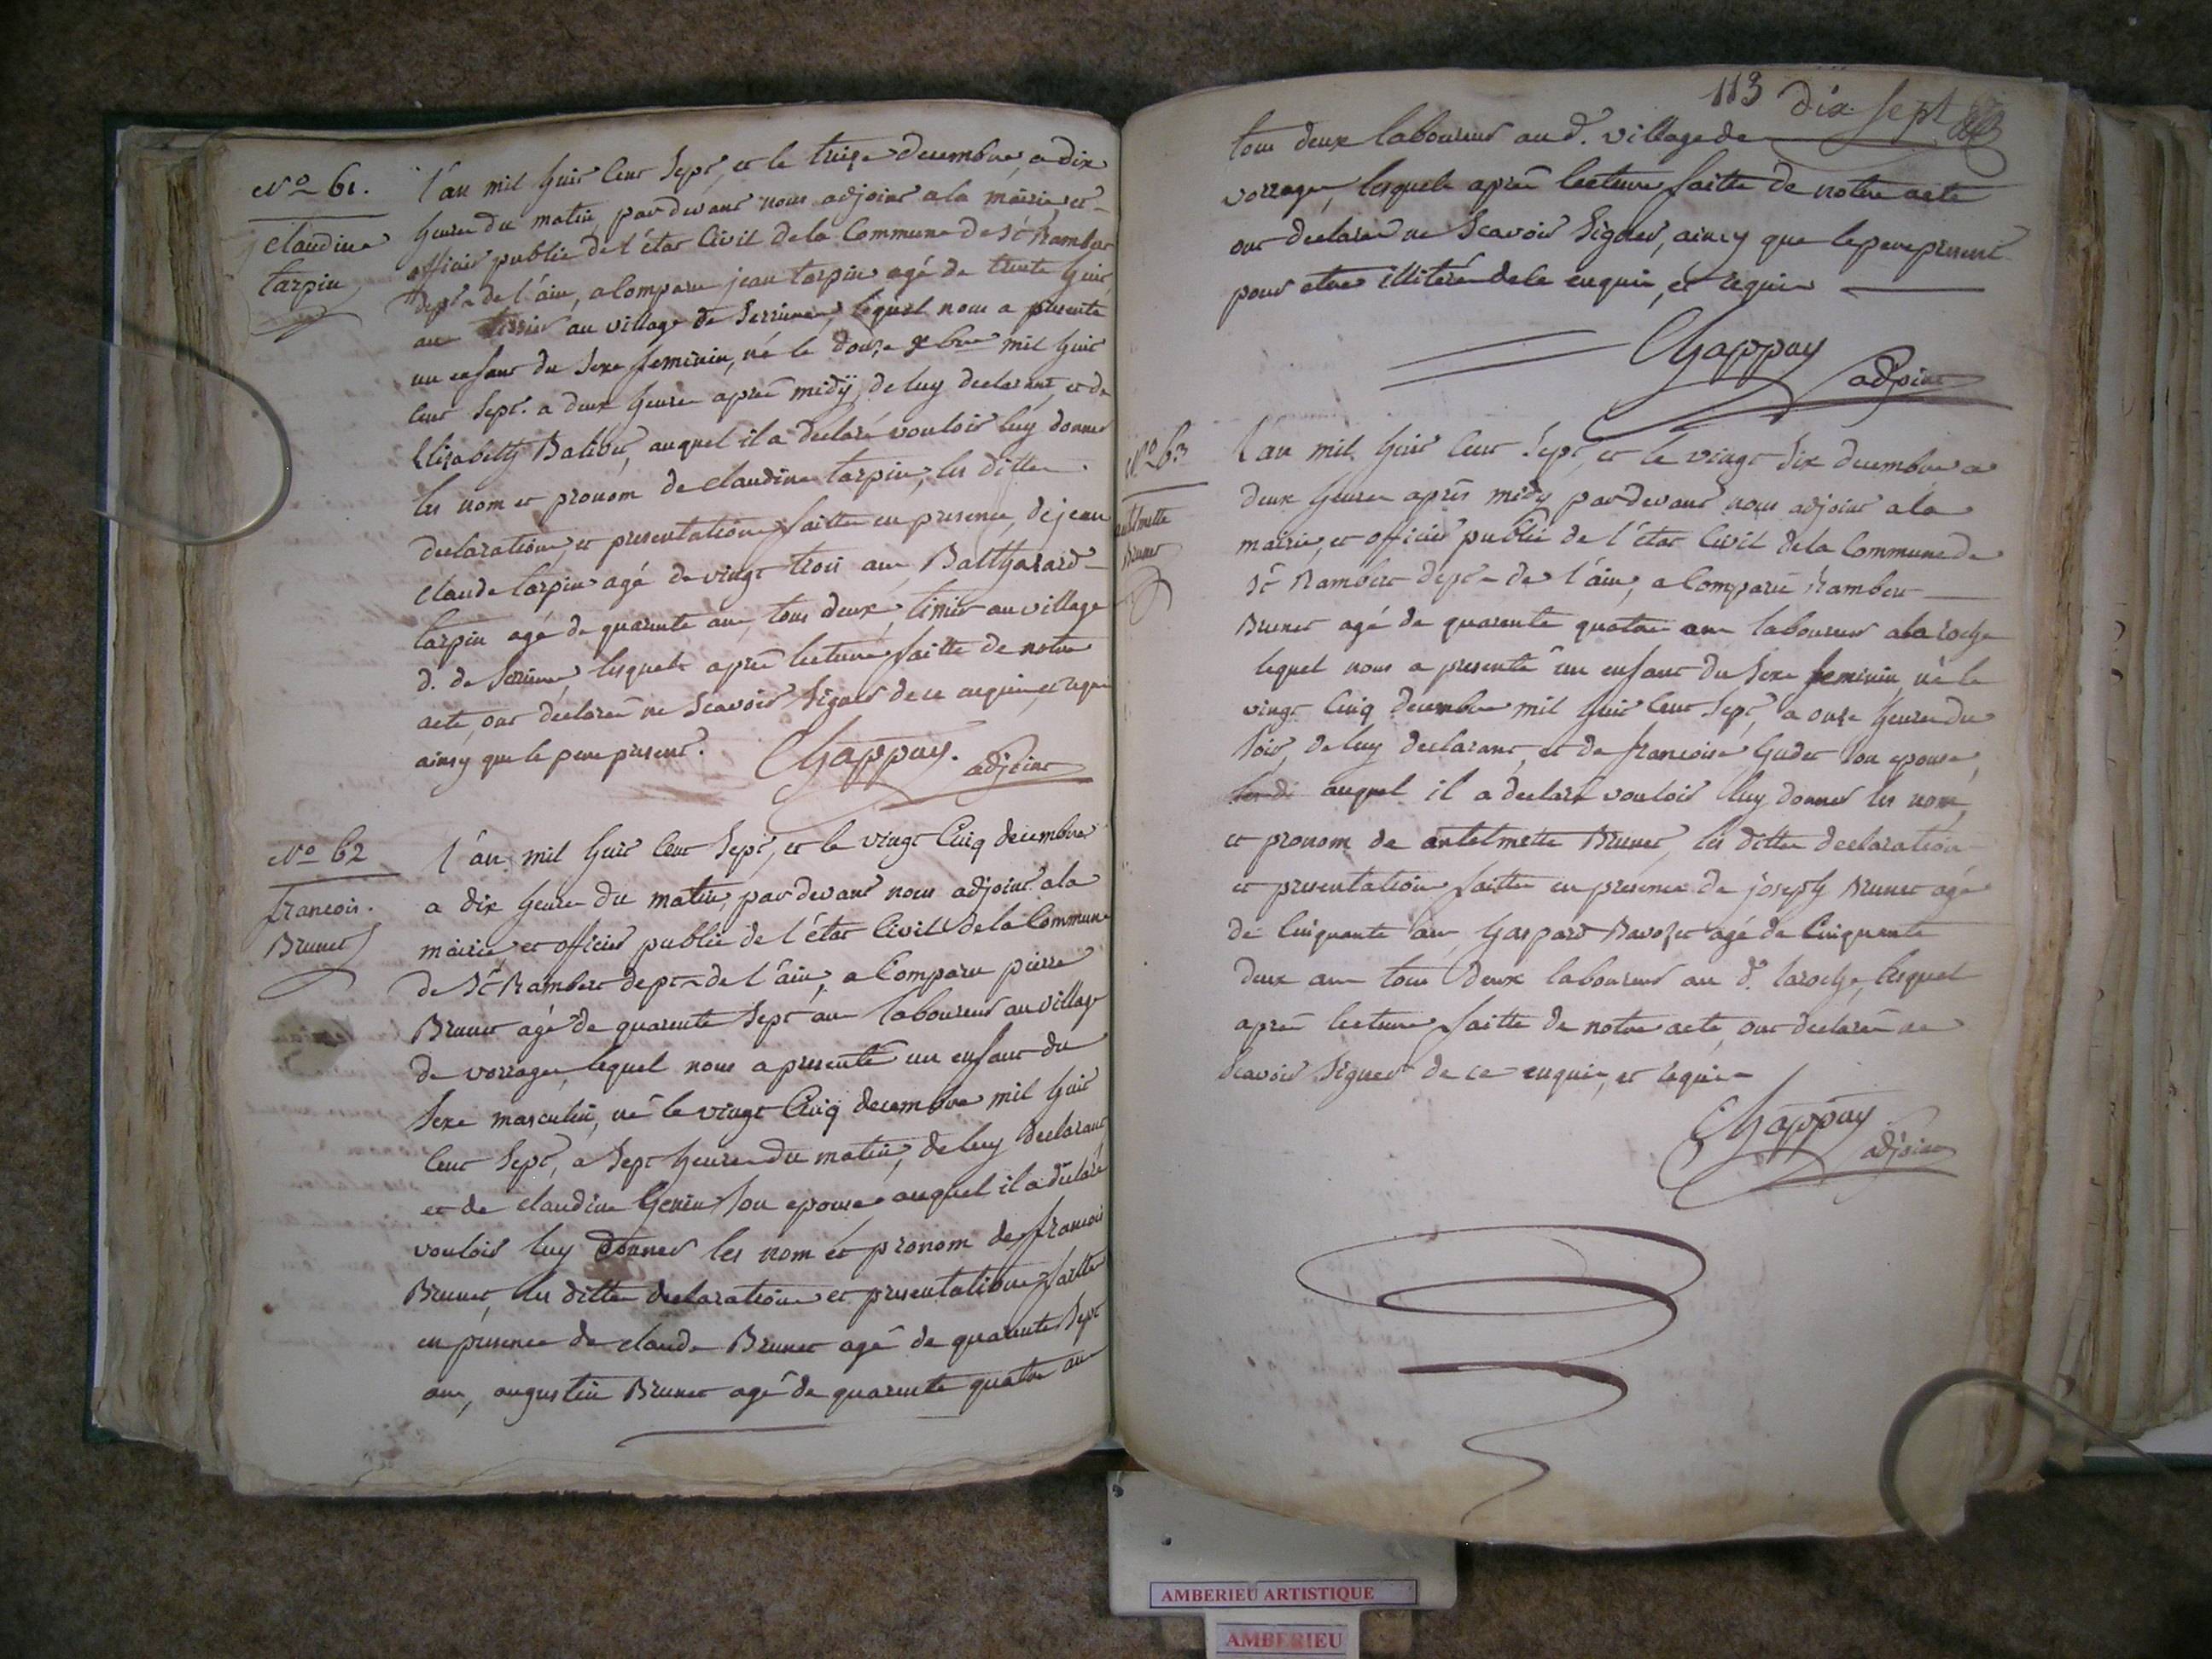 No 61.
claudine
tarpin
l'an mil huit cent sept, et le treize decembre, a dix
heure du matin, par devant nous adjoint a la mairie, et
officier public de l'état civil de la commune de St Rambert
dept de l'ain, a comparu jean tarpin agé de trente huit
ans tissier au village de Serrieres, lequel nous a presenté
un enfant du sexe feminin, né le douze xbre mil huit
cent sept. a deux heure apres midÿ, de luy declarant, et de
Elisabeth Balivet, auquel il a declaré vouloir luy donner
les nom et pronom de claudine tarpin, les ditte
declaration, et presentation faitte en presence, de jean
claude tarpin agé de vingt trois ans, Balthazard
tarpin agé de quarente ans, tous deux, au village
d. de lesquels apres lecture faitte de notre
acte, ont declaré ne scavoir signer de ce enquis, et requis
ainsy que le pere present.
Chappuy. adjoint
No 62
francois.
Brunet
l'an mil huit cent sept, et le vingt cinq decembre
a dix heure du matin, par devant nous adjoint a la
mairie, et officier public de l'état civil de la commune
de St Rambert dept de l'ain, a comparu pierre
Brunet agé de quarente sept ans laboureur au village
de vorrage, lequel nous a presenté un enfant du
sexe masculin, né le vingt cinq decembre mil huit
cent sept, a sept heure du matin, de luy declarant
et de claudine Genin son epouse, auquel il a declaré
vouloir luy donner les nom et pronom de francois
Brunet, les ditte declaration et presentation faitte
en presence de claude Brunet agé de quarente sept
ans, augustin Brunet agé de quarente quatre ans
113 dix sept
tous deux laboureur au d. village de
vorrage, lesquels apres lecture faitte de notre acte
ont declaré ne scavoir signer, ainsy que le pere present
pour etre illiteré de ce enquis, et requis
Chappuy
adjoint
No 63
antelmette
Brunet
l'an mil huit cent sept, et le vingt six decembre a
deux heure après midy par devant nous adjoint a la
mairie, et officier public de l'état civil de la commune de
St Rambert dept de l'ain, a comparu Rambert
Brunet agé de quarente quatre ans laboureur a la roche
lequel nous a presenté un enfant du sexe feminin, né le
vingt cinq decembre mil huit cent sept, a onze heure du
soir, de luy declarant, et de francoise son epouse,
auquel il a declaré vouloir luy donner les nom,
et pronom de antelmette Brunet, les ditte declaration
et presentation faitte en presence de joseph Brunet agé
de cinquante ans Gaspard Ravozet agé de cinquante
deux ans tous deux laboureur au d. laroche, lesquel
apres lecture faitte de notre acte, ont declaré ne
scavoir signer de ce enquis, et requis
Chappuy
adjoint
AMBERIEU ARTISTIQUE
AMBERIEU